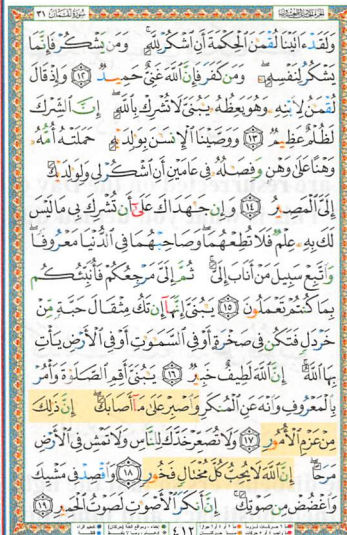 سورة لقمان ٣١
وَلَقَدْ ءَاتَيْنَا لُقْمَٰنَ ٱلْحِكْمَةَ أَنِ ٱشْكُرْ لِلَّهِ ۚ وَمَن يَشْكُرْ فَإِنَّمَا
يَشْكُرُ لِنَفْسِهِۦ ۖ وَمَن كَفَرَ فَإِنَّ ٱللَّهَ غَنِىٌّ حَمِيدٌ ١٢ وَإِذْ قَالَ
لُقْمَٰنُ لِٱبْنِهِۦ وَهُوَ يَعِظُهُۥ يَٰبُنَىَّ لَا تُشْرِكْ بِٱللَّهِ ۖ إِنَّ ٱلشِّرْكَ
لَظُلْمٌ عَظِيمٌ ١٣ وَوَصَّيْنَا ٱلْإِنسَٰنَ بِوَٰلِدَيْهِ حَمَلَتْهُ أُمُّهُۥ
وَهْنًا عَلَىٰ وَهْنٍ وَفِصَٰلُهُۥ فِى عَامَيْنِ أَنِ ٱشْكُرْ لِى وَلِوَٰلِدَيْكَ
إِلَىَّ ٱلْمَصِيرُ ١٤ وَإِن جَٰهَدَاكَ عَلَىٰٓ أَن تُشْرِكَ بِى مَا لَيْسَ
لَكَ بِهِۦ عِلْمٌ فَلَا تُطِعْهُمَا ۖ وَصَاحِبْهُمَا فِى ٱلدُّنْيَا مَعْرُوفًا ۖ
وَٱتَّبِعْ سَبِيلَ مَنْ أَنَابَ إِلَىَّ ۚ ثُمَّ إِلَىَّ مَرْجِعُكُمْ فَأُنَبِّئُكُم
بِمَا كُنتُمْ تَعْمَلُونَ ١٥ يَٰبُنَىَّ إِنَّهَآ إِن تَكُ مِثْقَالَ حَبَّةٍ مِّنْ
خَرْدَلٍ فَتَكُن فِى صَخْرَةٍ أَوْ فِى ٱلسَّمَٰوَٰتِ أَوْ فِى ٱلْأَرْضِ يَأْتِ
بِهَا ٱللَّهُ ۚ إِنَّ ٱللَّهَ لَطِيفٌ خَبِيرٌ ١٦ يَٰبُنَىَّ أَقِمِ ٱلصَّلَوٰةَ وَأْمُرْ
بِٱلْمَعْرُوفِ وَٱنْهَ عَنِ ٱلْمُنكَرِ وَٱصْبِرْ عَلَىٰ مَآ أَصَابَكَ ۖ إِنَّ ذَٰلِكَ
مِنْ عَزْمِ ٱلْأُمُورِ ١٧ وَلَا تُصَعِّرْ خَدَّكَ لِلنَّاسِ وَلَا تَمْشِ فِى ٱلْأَرْضِ
مَرَحًا ۖ إِنَّ ٱللَّهَ لَا يُحِبُّ كُلَّ مُخْتَالٍ فَخُورٍ ١٨ وَٱقْصِدْ فِى مَشْيِكَ
وَٱغْضُضْ مِن صَوْتِكَ ۚ إِنَّ أَنكَرَ ٱلْأَصْوَٰتِ لَصَوْتُ ٱلْحَمِيرِ ١٩
٤١٢